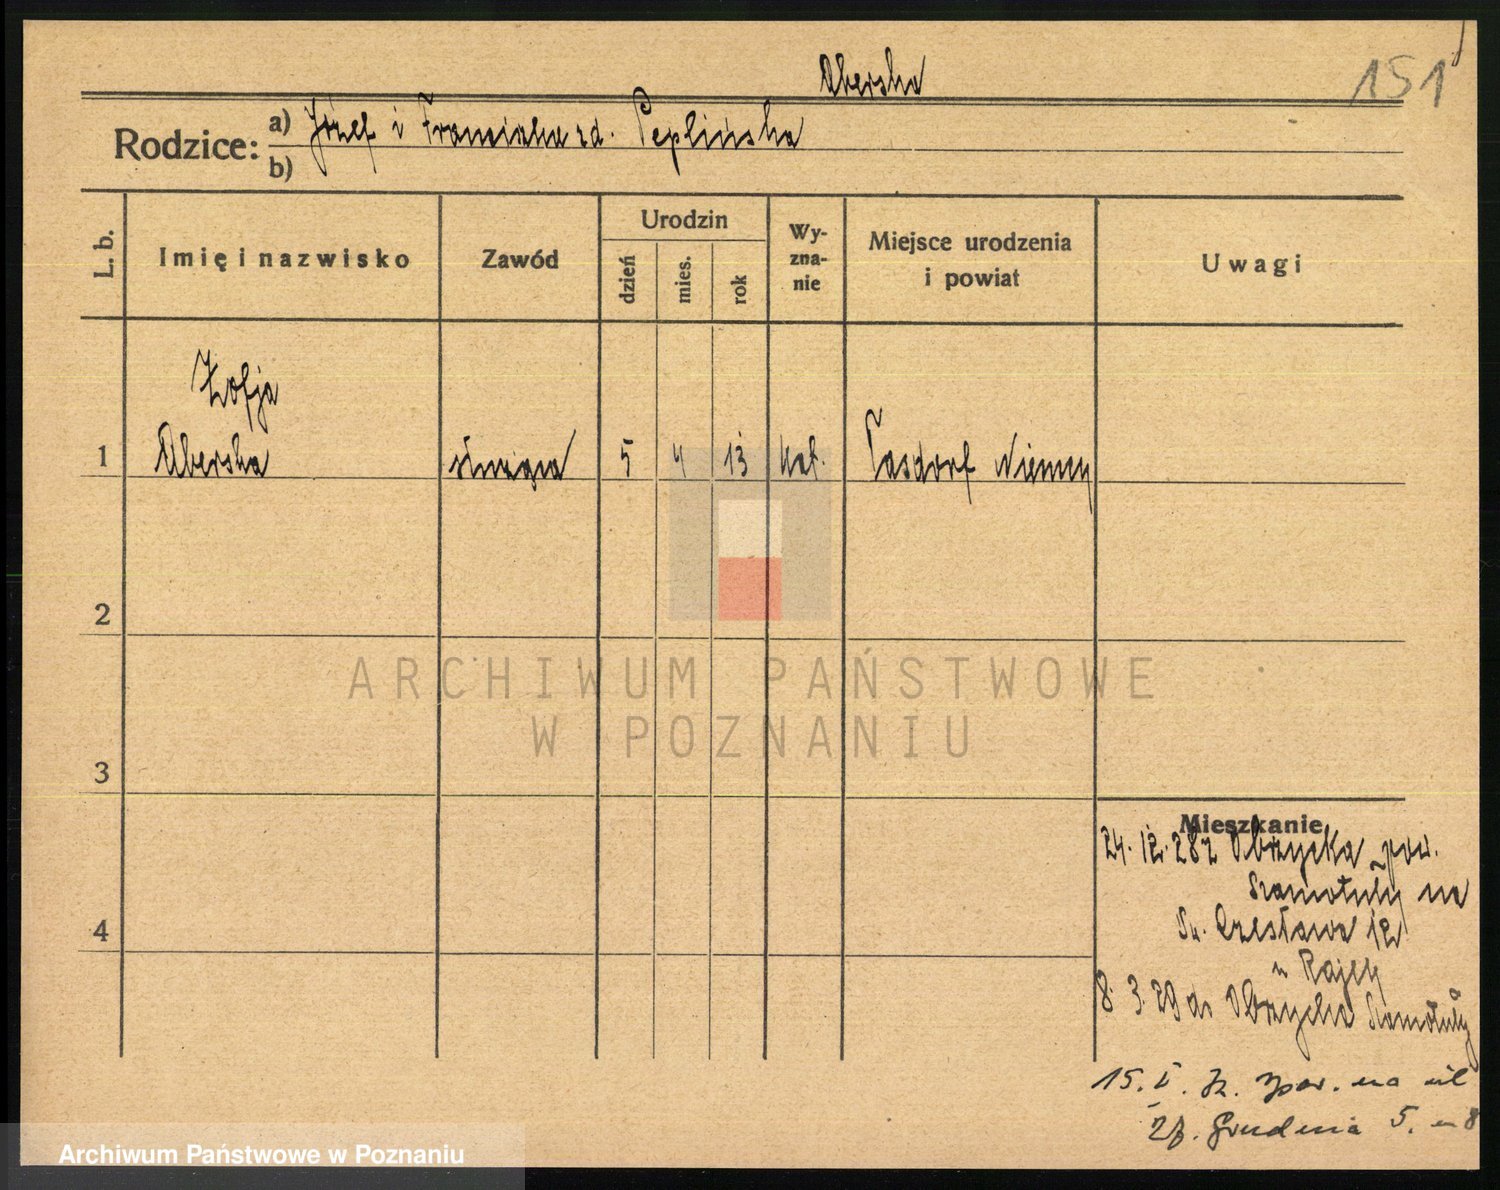 Aberska
151
Rodzice: a) Józef i Franciszka zd. Peplińska
b)
L. b.
Imię i nazwisko
Zawód
Urodzin
dzień
mies.
rok
Wy-
zna-
nie
Miejsce urodzenia
i powiat
Uwagi
Zofja
1 Aberska służąca 5 4 13 kat. Tasdorf Niemcy
2
3
4
Mieszkanie
24. 12. 28 z Obrzycka pow.
Szamotuły na
Św. Czesława 12
u Rajcy
8. 3. 29 do Obrzycka Szamotuły
15. I. pow. na ul
27. Grudnia 5. m 8
ARCHIWUM PAŃSTWOWE
W POZNANIU
Archiwum Państwowe w Poznaniu